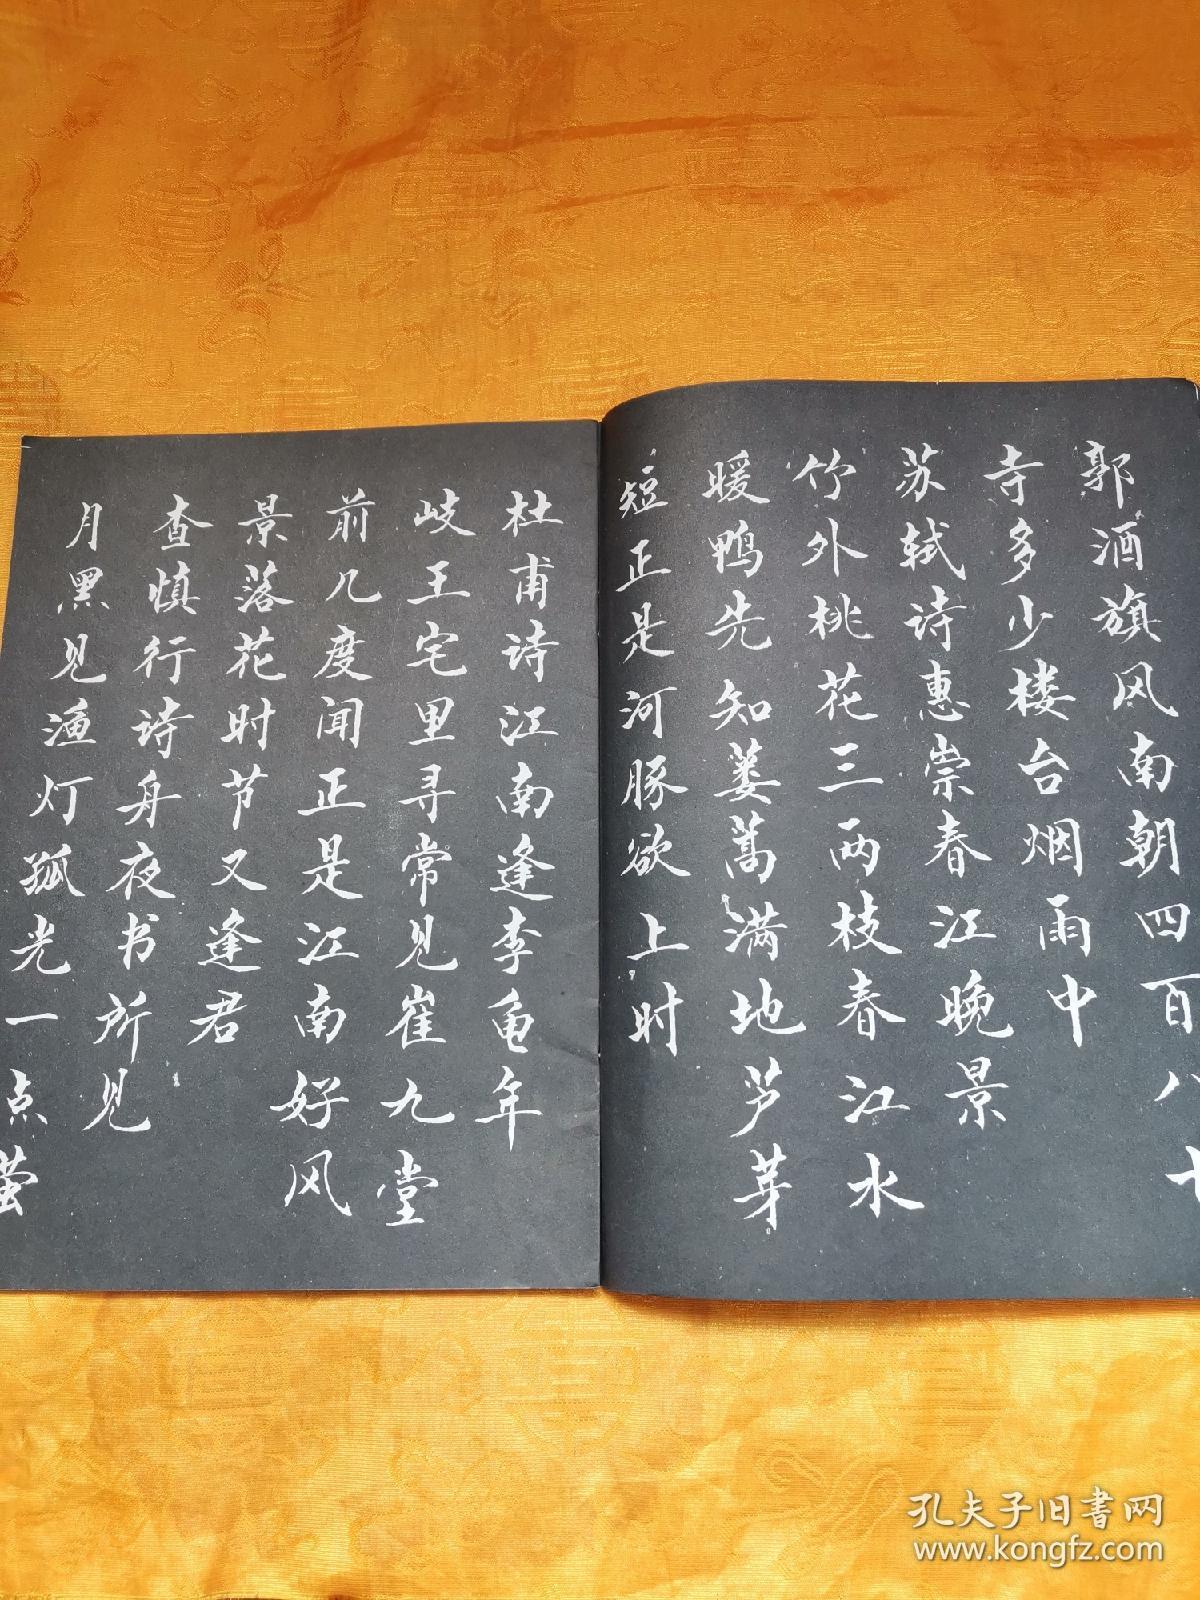 郭酒旗风南朝四百八十
寺多少楼台烟雨中
苏轼诗惠崇春江晚景
竹外桃花三两枝春江水
暖鸭先知蒌蒿满地芦芽
短正是河豚欲上时
杜甫诗江南逢李龟年
岐王宅里寻常见崔九堂
前几度闻正是江南好风
景落花时节又逢君
查慎行诗舟夜书所见
月黑见渔灯孤光一点萤
孔夫子旧书网
www.kongfz.com